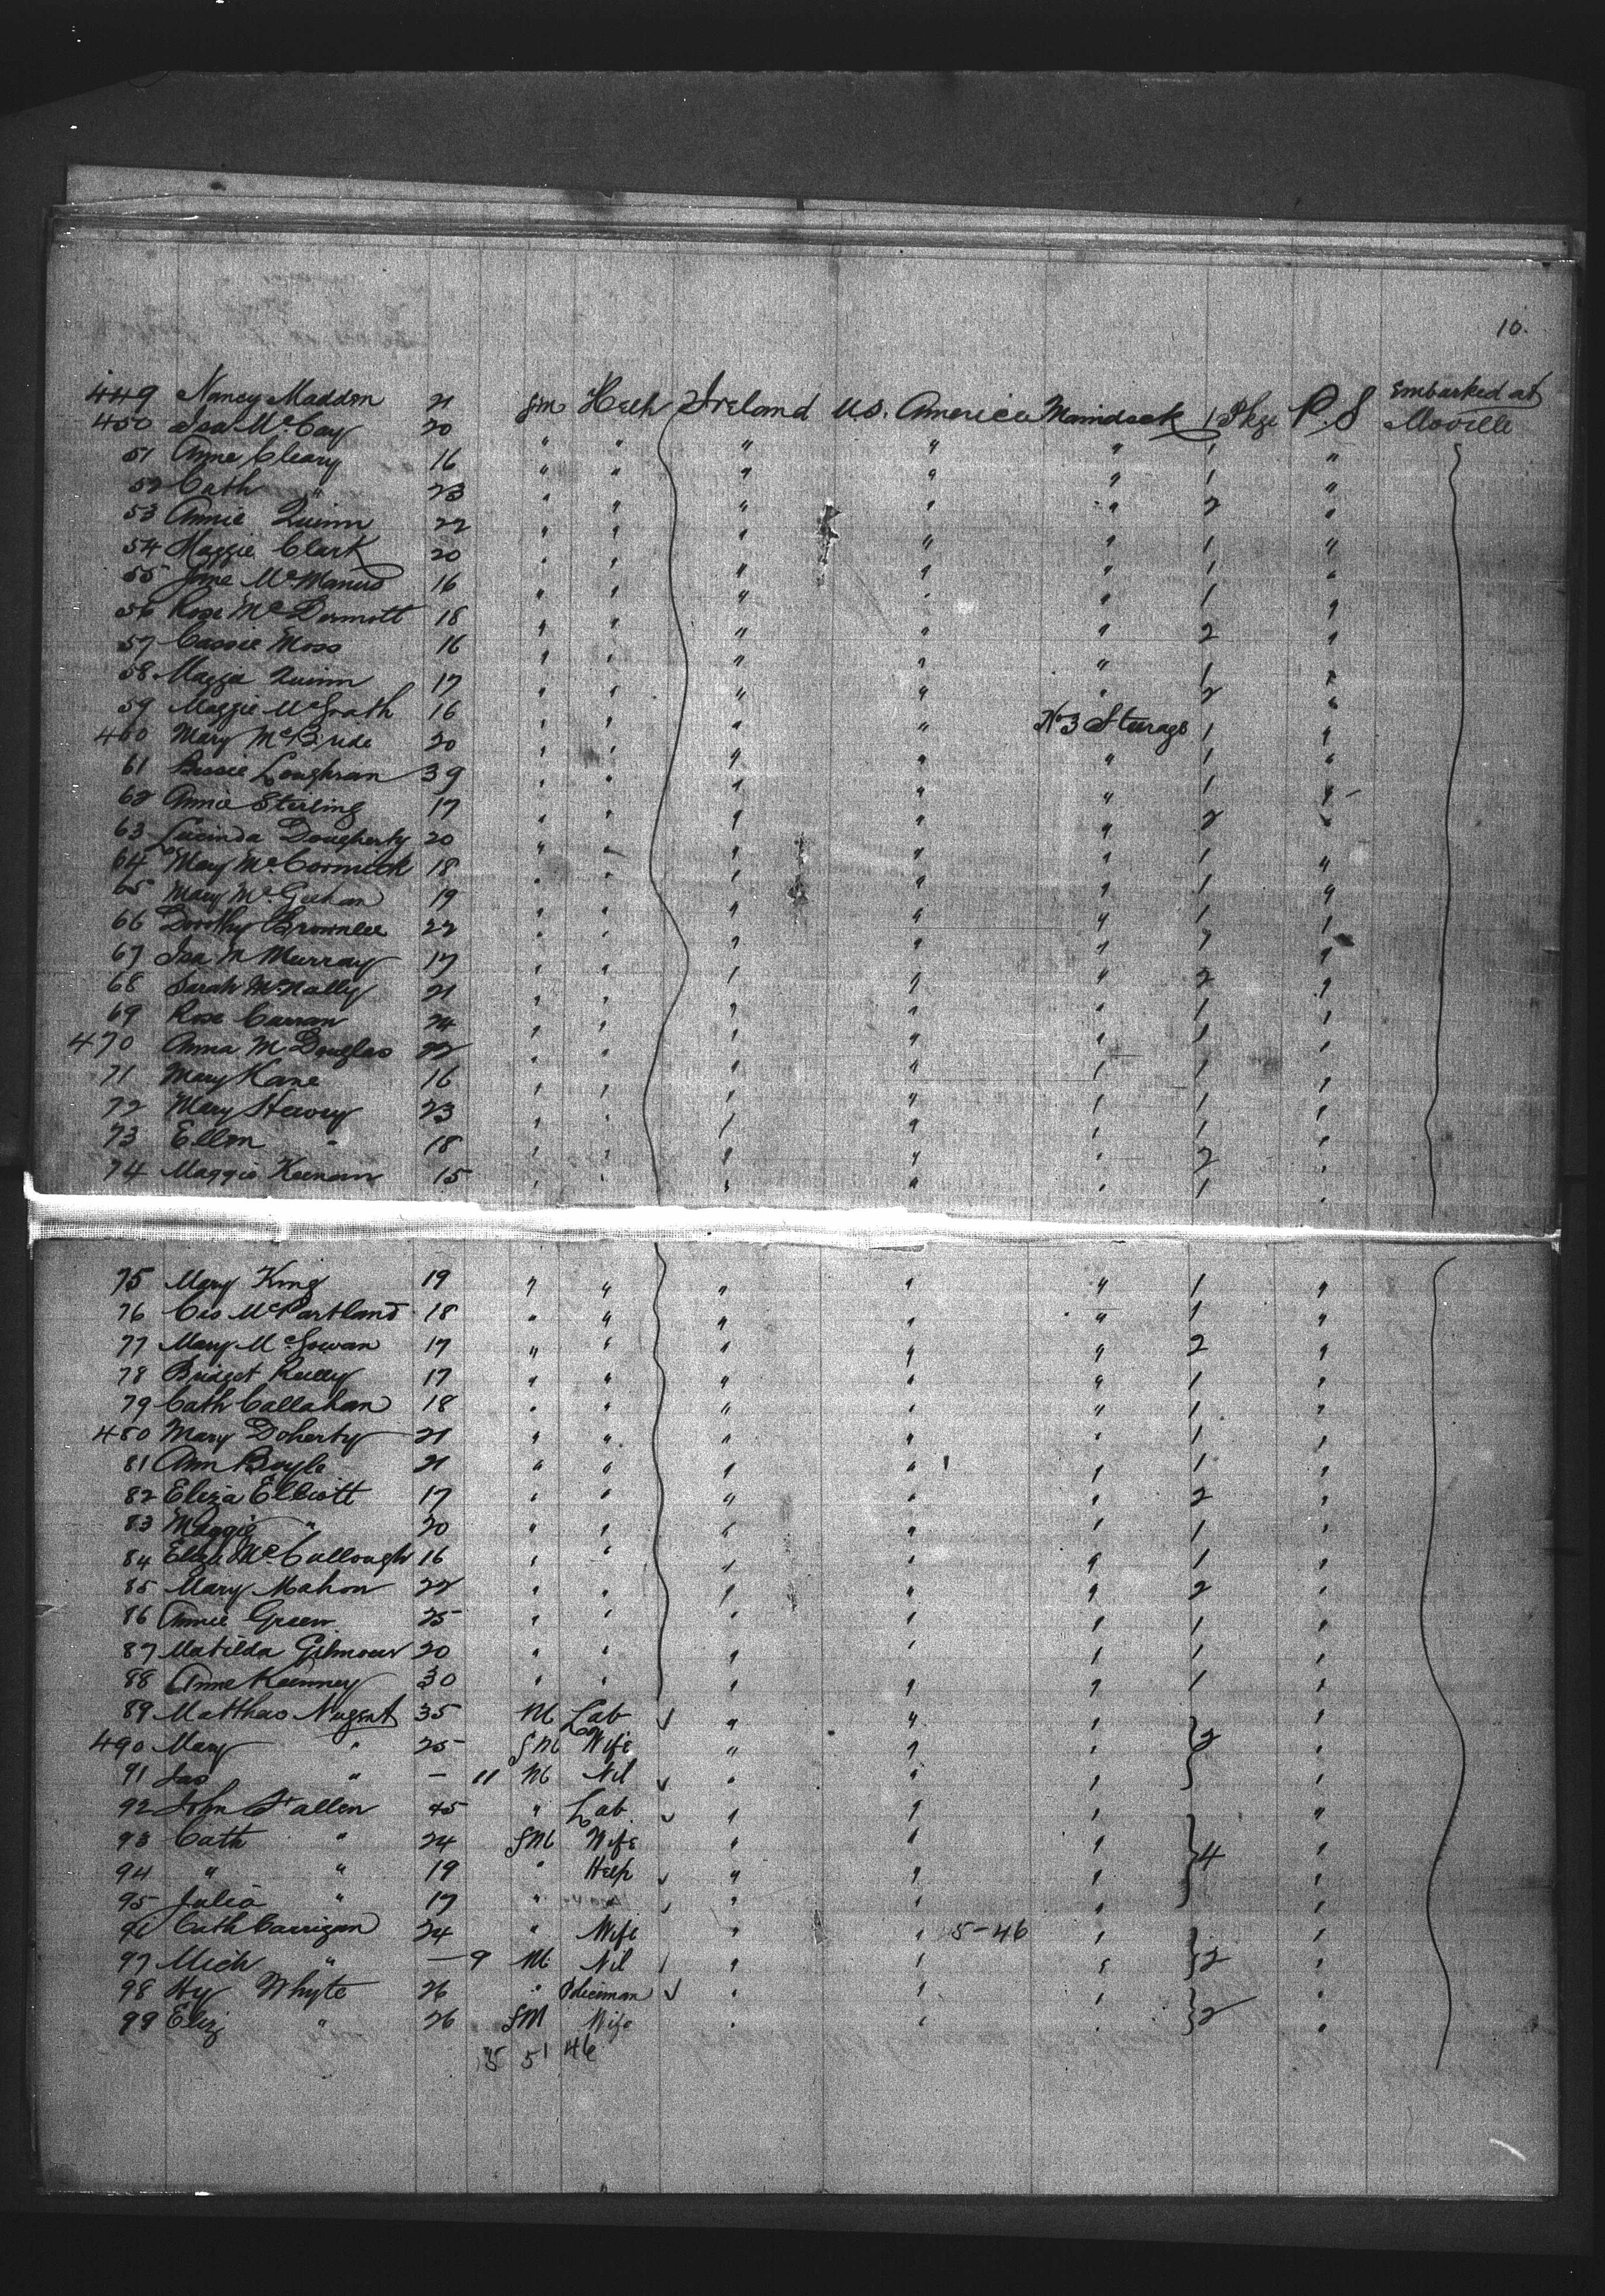 10.
449 Nancy Madden 21 fm Help Ireland U.S. America Maindeck 1 Pkge P.S Embarked at Moville
450 Isa McCay 20 " " " " " 1 "
51 Anne Cleary 16 " " " " " 1 "
52 Cath " 23 " " " " " 2 "
53 Annie Quinn 22 " " " " " 1 "
54 Maggie Clark 20 " " " " " 1 "
55 Jane McManus 16 " " " " " 1 "
56 Rose McDermott 18 " " " " " 2 "
57 Cassie Moss 16 " " " " " 1 "
58 Maggie Quinn 17 " " " " " 2 "
59 Maggie McGrath 16 " " " " No 3 Sturage 1 "
460 Mary McBride 20 " " " " " 1 "
61 Bessie Loughran 39 " " " " " 1 "
62 Annie Sterling 17 " " " " " 2 "
63 Lucinda Dougherty 20 " " " " " 1 "
64 Mary McCormick 18 " " " " " 1 "
65 Mary McGeehan 19 " " " " " 1 "
66 Dorothy Brownlee 22 " " " " " 1 "
67 Isa M Murray 17 " " " " " 2 "
68 Sarah McNally 21 " " " " " 1 "
69 Rose Curran 24 " " " " " 1 "
470 Anna M Douglas 22 " " " " " 1 "
71 Mary Kane 16 " " " " " 1 "
72 Mary 23 " " " " " 1 "
73 Ellen " 18 " " " " " 2 "
74 Maggie Keenan 15 " " " " " 1 "
75 Mary King 19 " " " " " 1 "
76 Cis McPartland 18 " " " " " 1 "
77 Mary McGowan 17 " " " " " 2 "
78 Bridget Reilly 17 " " " " " 1 "
79 Cath Callahan 18 " " " " " 1 "
480 Mary Doherty 21 " " " " " 1 "
81 Ann Boyle 21 " " " " " 1 "
82 Eliza Elliott 17 " " " " " 2 "
83 Maggie " 20 " " " " " 1 "
84 Eliza McCullough 16 " " " " " 1 "
85 Mary Mahon 22 " " " " " 2 "
86 Annie Green 25 " " " " " 1 "
87 Matilda Gilmour 20 " " " " " 1 "
88 Anne Keenney 30 " " " " " 1 "
89 Matthas Nugent 35 M Lab " " " 2 "
490 Mary " 25 fM Wife " " " "
91 Jas " — 11 M Nil " " " "
92 John Fallen 45 " Lab " " " 4 "
93 Cath " 24 fM Wife " " " "
94 " " 19 " Help " " " "
95 Julia " 17 " " " " " "
96 Cath Carrigan 24 " Wife " " 5-46 " 2 "
97 Mich " — 9 M Nil " " " "
98 Hy Whyte 26 " Policeman " " " 2 "
99 Eliz " 26 fM Wife " " " "
5 51 46